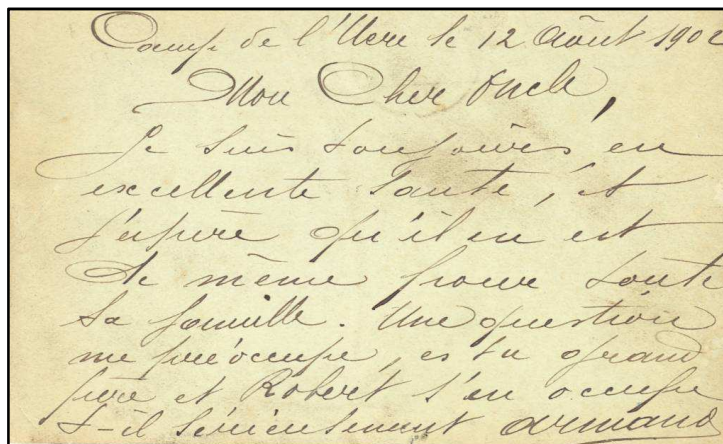 Camp de le 12 Août
Mon Cher Oncle,
Je suis toujours en
excellente santé, et
j'espère qu'il en est
de même pour toute
ta famille. Une question
me préoccupe, es tu grand
père et Robert s'en occupe
t-il sérieusement Armand